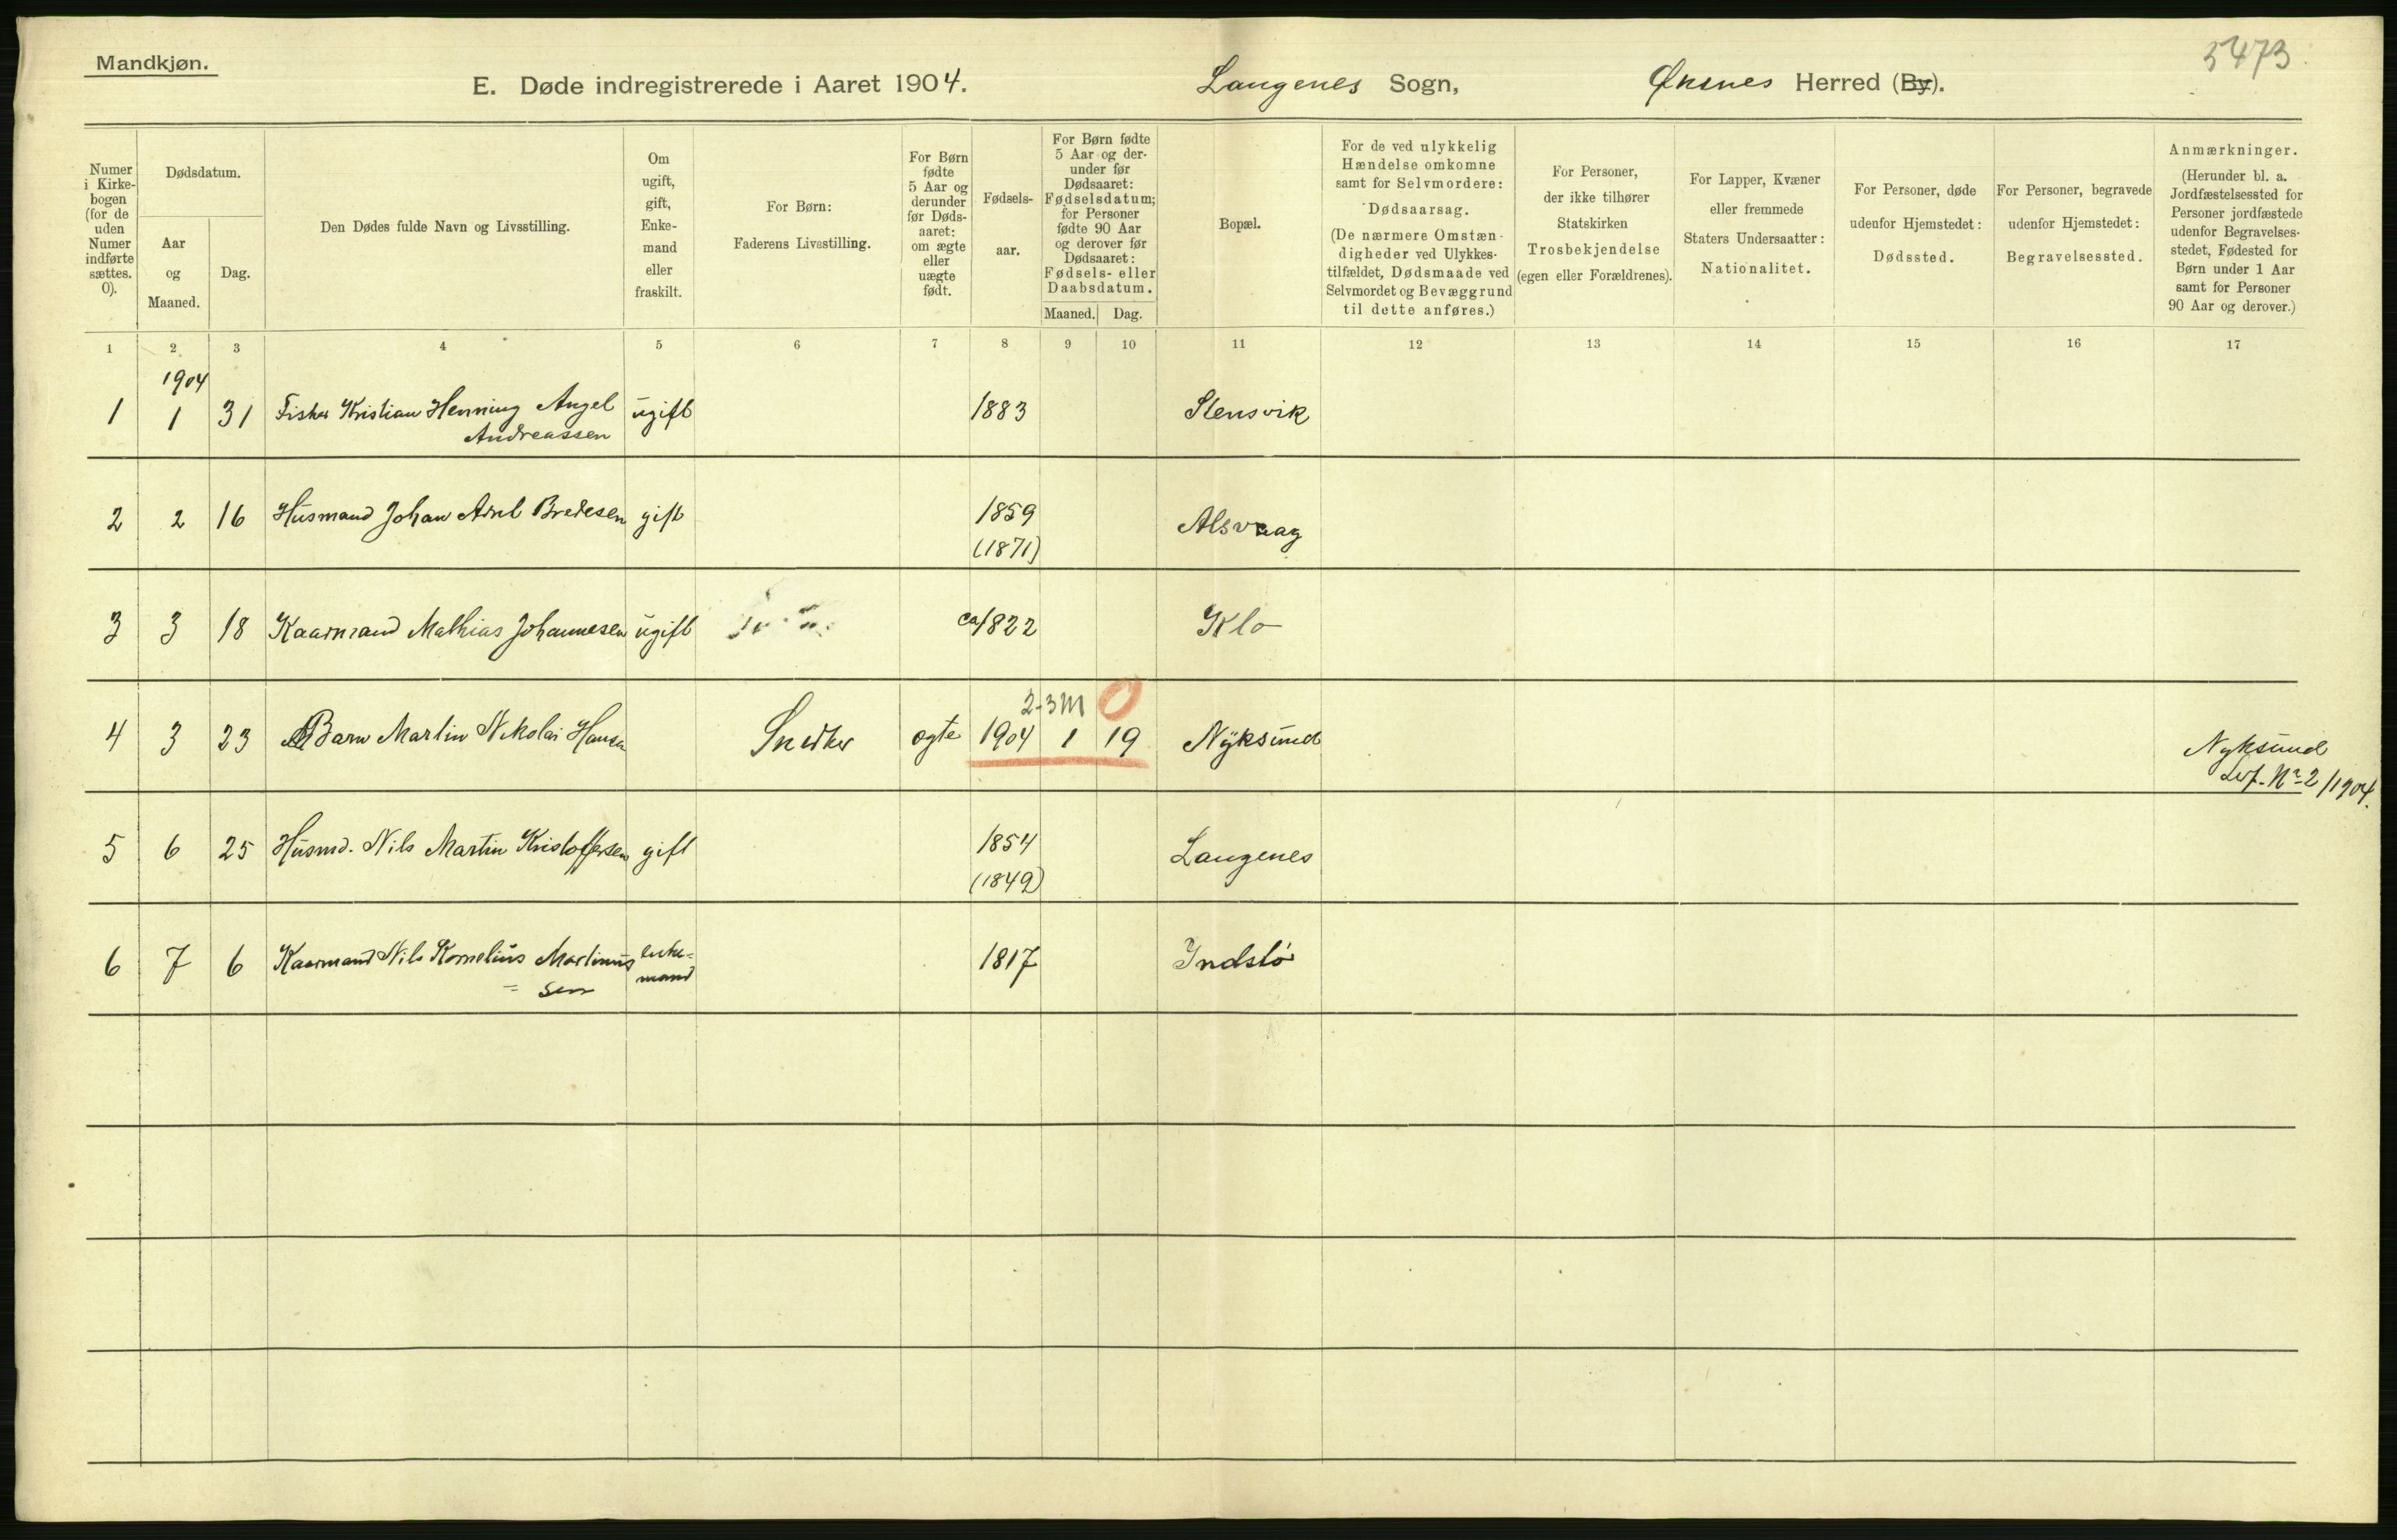 Mandkjøn.
5473.
E. Døde indregistrerede i Aaret 1904. Langenes Sogn, Øksnes Herred (By).
Numer i Kirkebogen (for de uden Numer indførte sættes. 0).
Dødsdatum.
Aar og Maaned.
Dag.
Den Dødes fulde Navn og Livsstilling.
Om ugift, gift, Enkemand eller fraskilt.
For Børn:
Faderens Livsstilling.
For Børn fødte 5 Aar og derunder før Dødsaaret: om ægte eller uægte født.
Fødselsaar.
For Børn fødte 5 Aar og derunder før Dødsaaret: Fødselsdatum; for Personer fødte 90 Aar og derover før Dødsaaret: Fødsels- eller Daabsdatum.
Maaned. Dag.
Bopæl.
For de ved ulykkelig Hændelse omkomne samt for Selvmordere: Dødsaarsag. (De nærmere Omstændigheder ved Ulykkestilfældet, Dødsmaade ved Selvmordet og Bevæggrund til dette anføres.)
For Personer, der ikke tilhører Statskirken Trosbekjendelse (egen eller Forældrenes).
For Lapper, Kvæner eller fremmede Staters Undersaatter: Nationalitet.
For Personer, døde udenfor Hjemstedet: Dødssted.
For Personer, begravede udenfor Hjemstedet: Begravelsessted.
Anmærkninger. (Herunder bl. a. Jordfæstelsessted for Personer jordfæstede udenfor Begravelsesstedet, Fødested for Børn under 1 Aar samt for Personer 90 Aar og derover.)
1 2 3 4 5 6 7 8 9 10 11 12 13 14 15 16 17
1904
1 1 31 Fisker Kristian Henning Angel ugift 1883 Stensvik
Andreassen
2 2 16 Husmand Johan Bredesen gift 1859 Alsvaag
(1871)
3 3 18 Kaarmand Mathias Johannesen ugift ca 1822 Klo
2-3 M 0
4 3 23 Barn Martin Nikolai Hansen Snedker ægte 1904 1 19 Nyksund Nyksund
Lev. Nr. 2/1904.
5 6 25 Husmd. Nils Martin Kristoffersen gift 1854 Langenes
(1849)
6 7 6 Kaarmand Nils Kornelius Martinus= enke= 1817 Indslö
sen mand